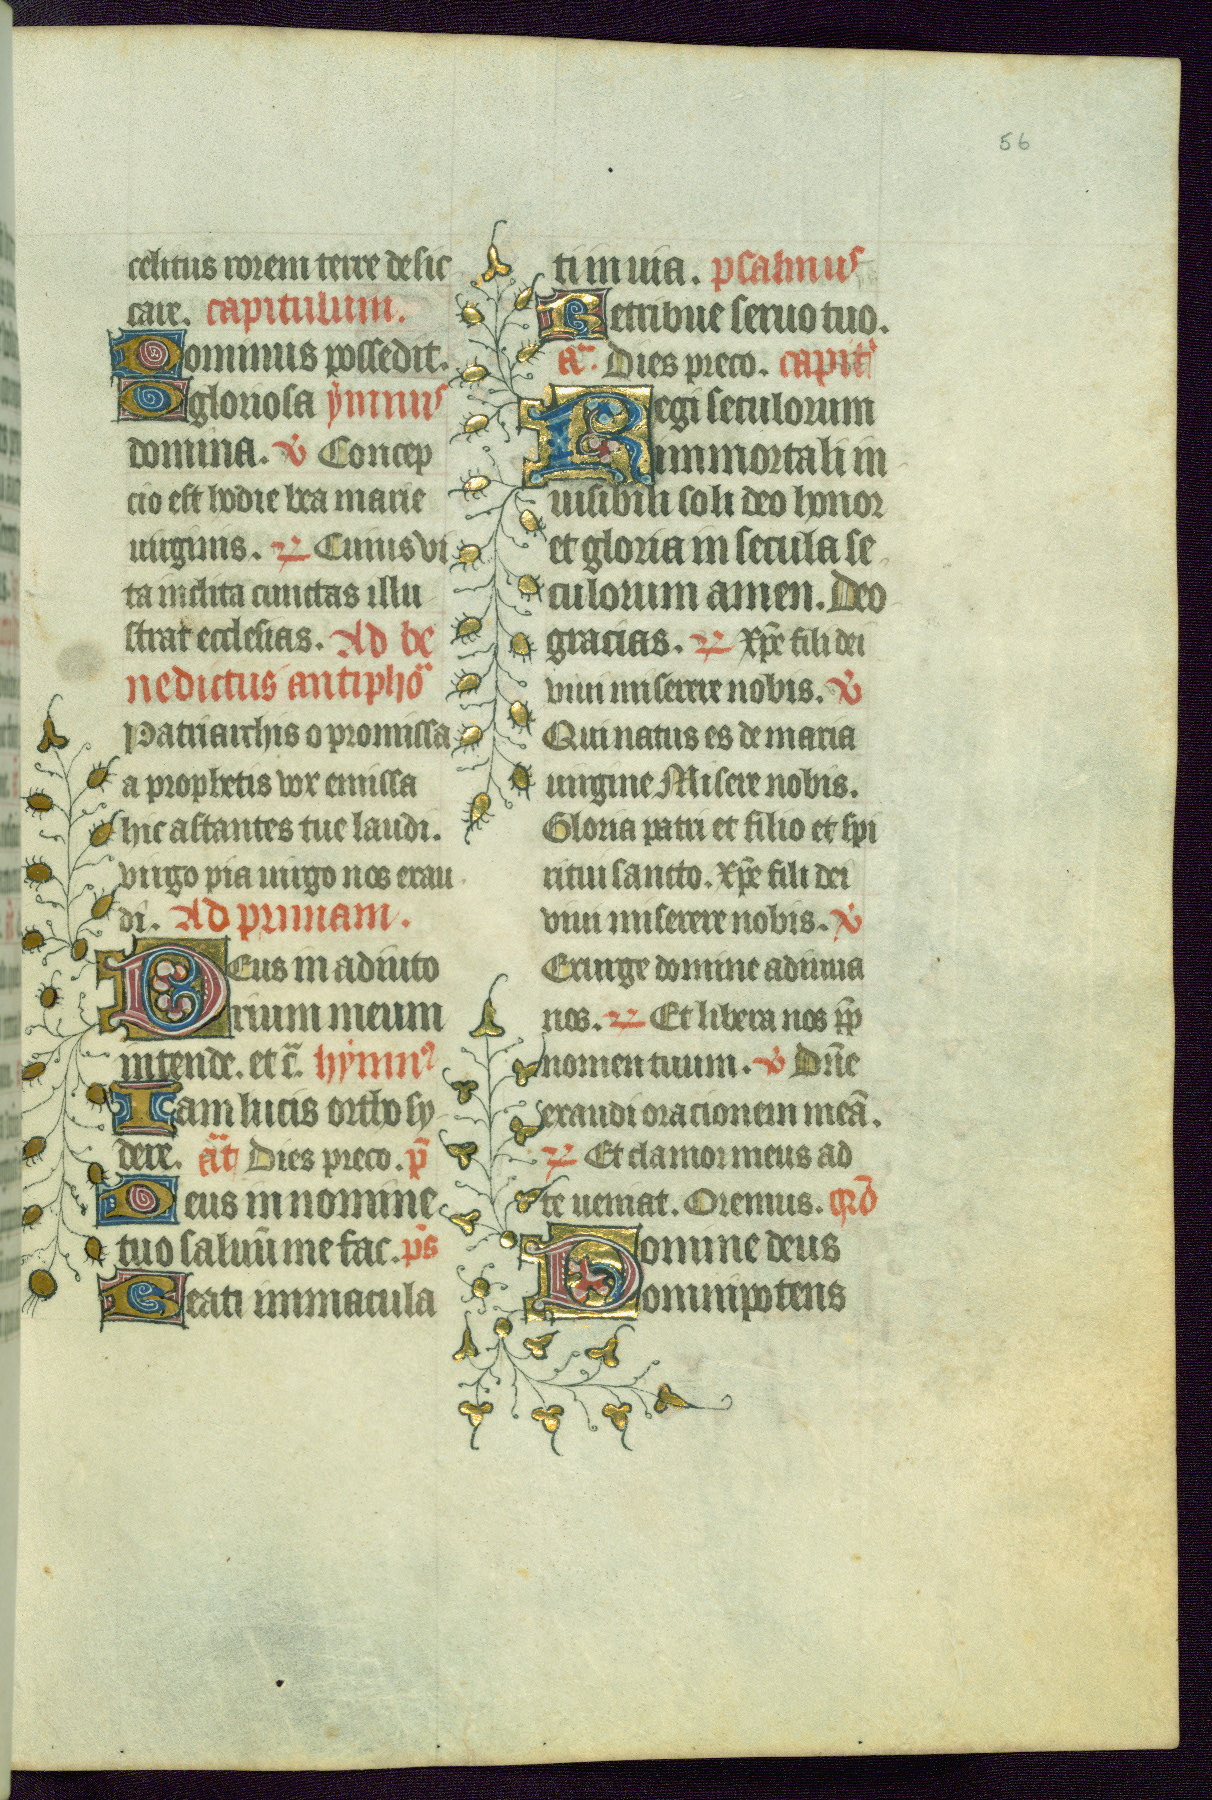 56
celitus rorem terre desic
care. capitulum.
Dominus possedit.
O gloriosa ymnus
domina. V Concep
cio est hodie bea marie
uirginis. R Cuius vi
ta inclita cunctas illu
strat ecclesias. Ad be
nedictus antipho
Patriarchis o promissa
a prophetis vox emissa
hic astantes tue laudi.
virgo pia uirgo nos exau
di. Ad primam.
Deus in adiuto
rium meum
intende. et c̄. hymn
Iam lucis ortho sy
dere. Añt Dies preco. p̄
Deus in nomine
tuo saluū me fac. p̄s
Beati immacula
ti in uia. psalmus
Retribue seruo tuo.
A. Dies preco. capit
Regi seculorum
immortali in
uisibili soli deo honor
et gloria in secula se
culorum amen. Deo
gracias. R Xp̄e fili dei
viui miserere nobis. V
Qui natus es de maria
uirgine Misere nobis.
Gloria patri et filio et spi
ritui sancto. Xp̄e fili dei
viui miserere nobis. V
Exurge domine adiuua
nos. R Et libera nos p̄p
nomen tuum. V Dn̄e
exaudi oracionem meā.
R Et clamor meus ad
te ueniat. Oremus. Orō
Domine deus
omnipotens